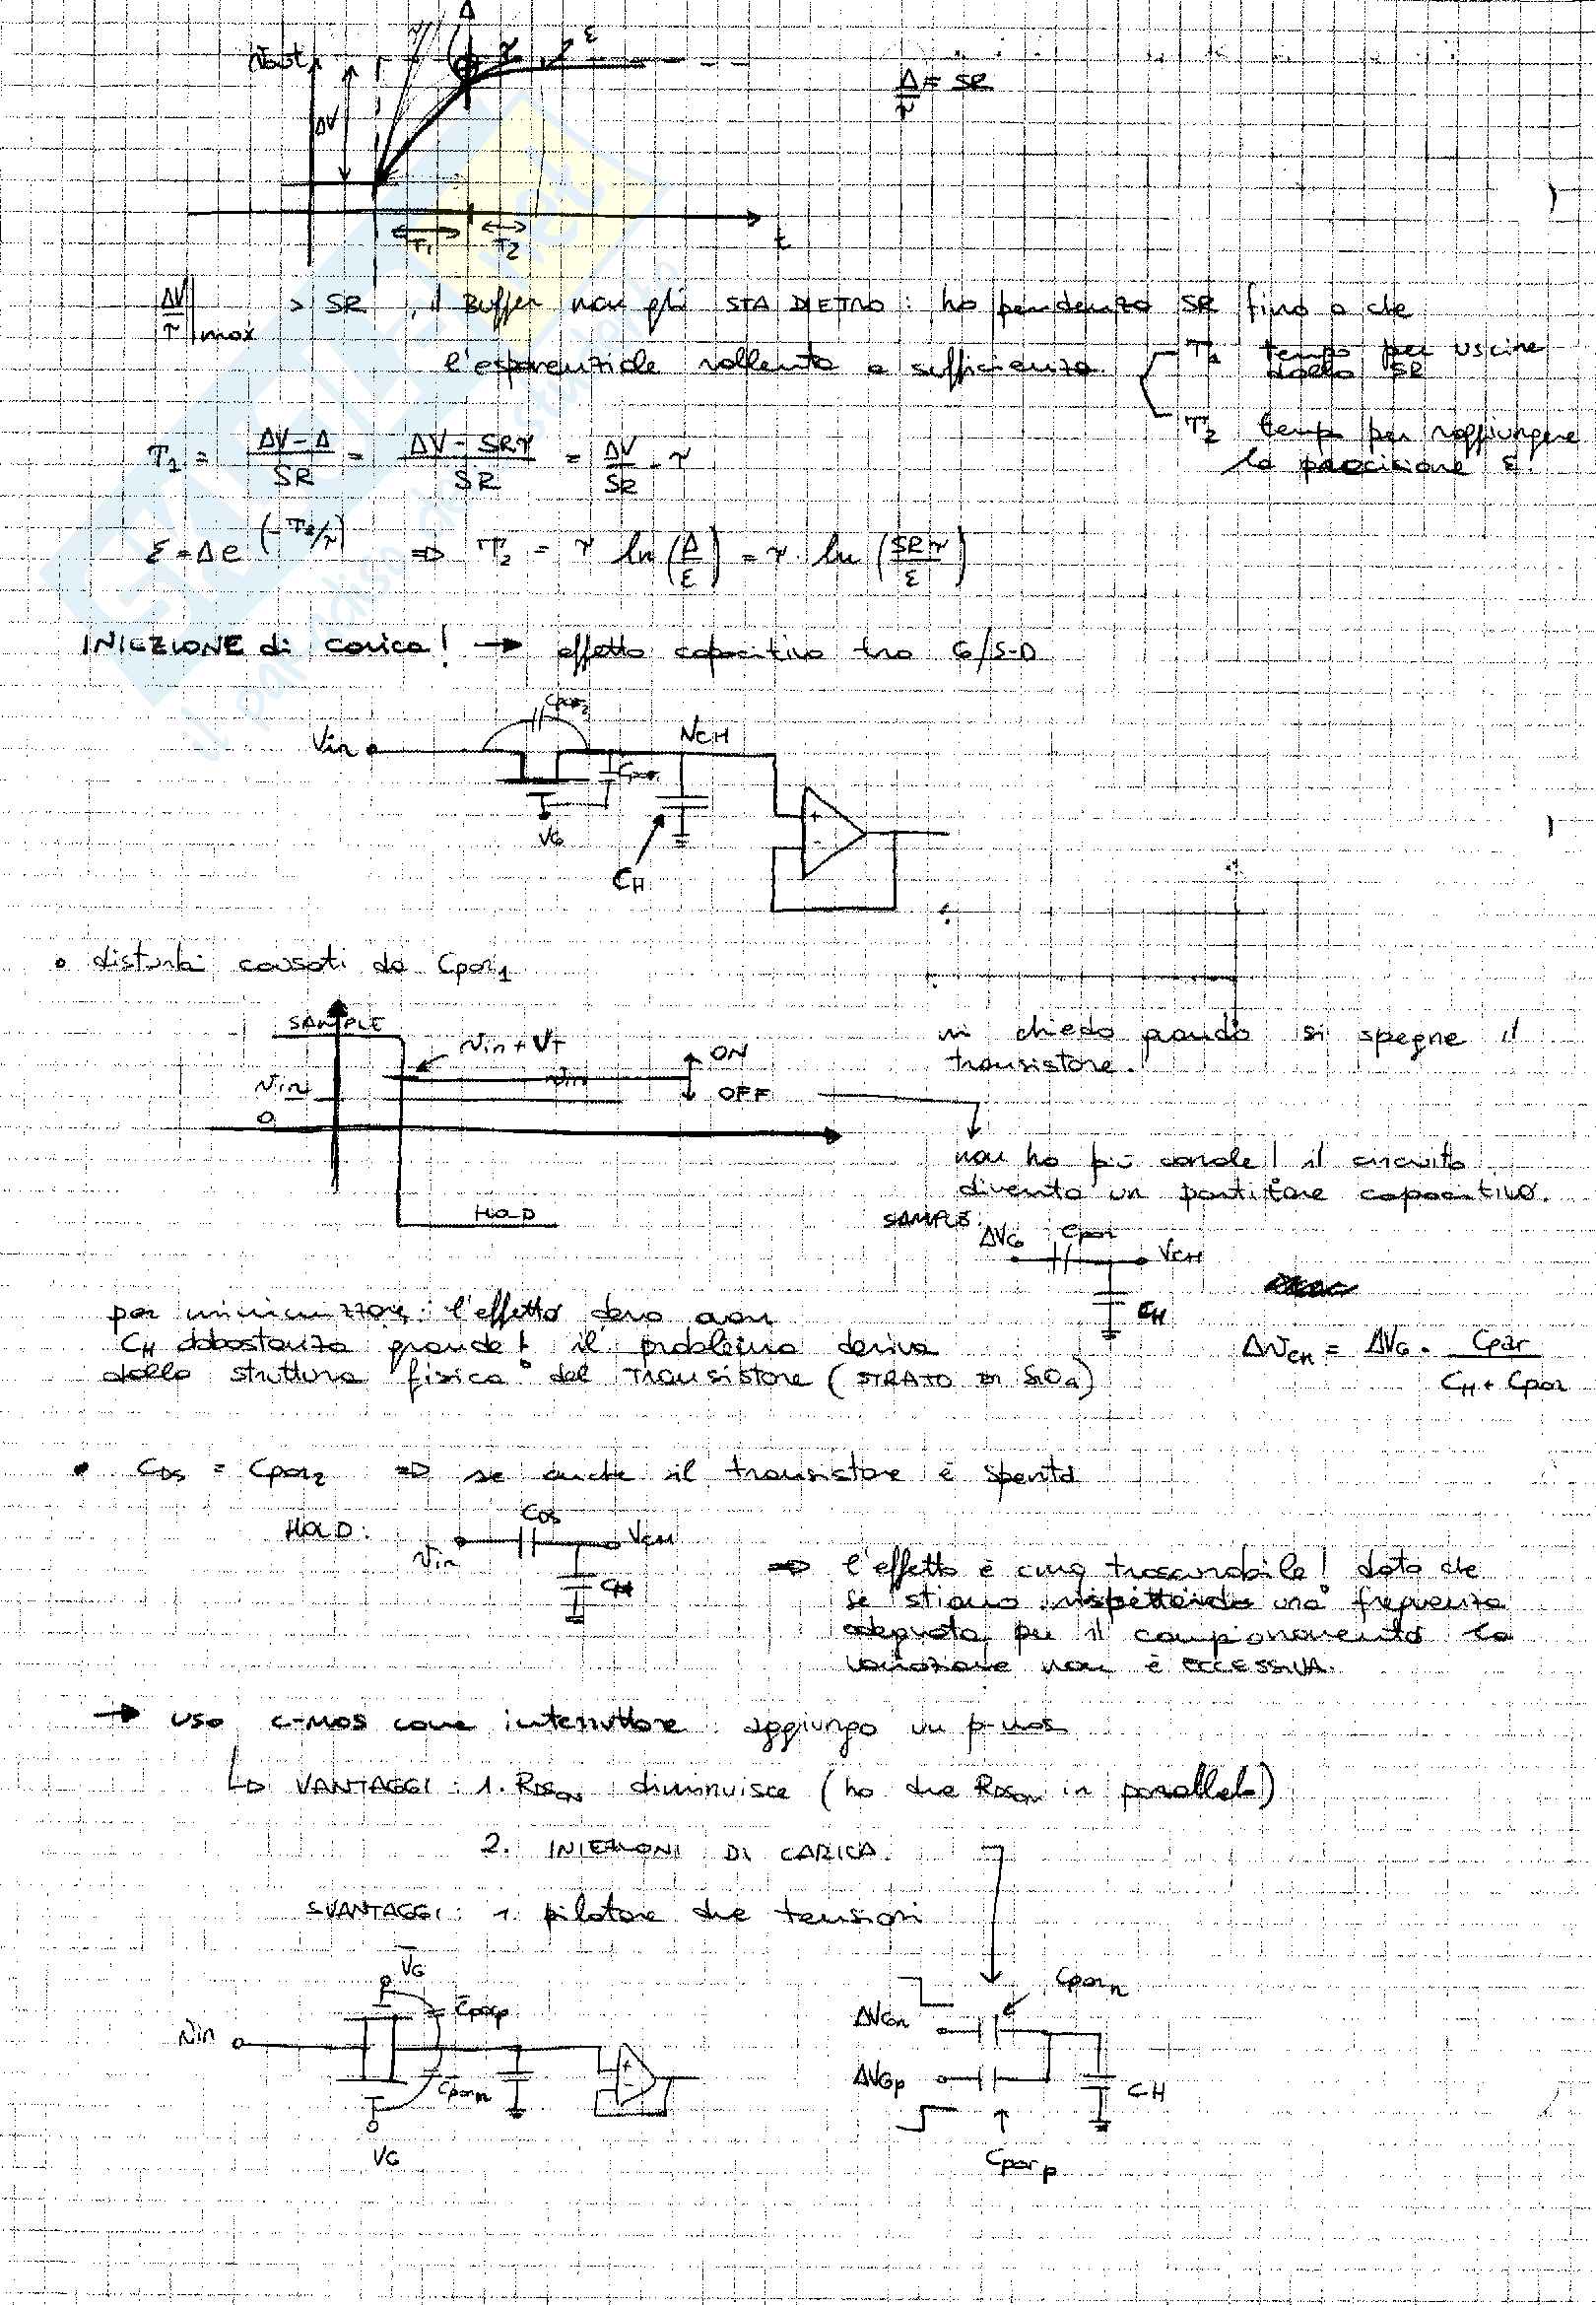 Vout
Δ
τ
ε
ΔV
T1
T2
t
Δ/τ = SR
ΔV/τ |max > SR , il Buffer non gli STA DIETRO: ho pendenza SR fino a che
l'esponenziale rallenta a sufficienza
T1 tempo per uscire dallo SR
T2 tempo per raggiungere la precisione ε.
T1 = (ΔV-Δ)/SR = (ΔV - SRτ)/SR = ΔV/SR - τ
ε = Δe^(-T2/τ) ⇒ T2 = τ ln(Δ/ε) = τ · ln(SRτ/ε)
INIEZIONE di carica! → effetto capacitivo tra G/S-D
Cpar2
Vin
VCH
Cpar1
VG
CH
• disturbi causati da Cpar1
SAMPLE
Vin + VT
ON
Vin
Vin
OFF
0
HOLD
mi chiedo quando si spegne il
transistore.
non ho più canale! il circuito
diventa un partitore capacitivo.
SAMPLE:
ΔVG
Cpar
VCH
CH
per minimizzare l'effetto devo avere
CH abbastanza grande! il problema deriva
dalla struttura fisica del transistore (STRATO DI SiO2)
ΔVCH = ΔVG · Cpar/(CH + Cpar)
• CDS = Cpar2 ⇒ se anche il transistore è spento
HOLD:
CDS
Vin
VCH
CH
⇒ l'effetto è cmq trascurabile! dato che
se stiamo rispettando una frequenza
adeguata per il campionamento la
variazione non è ECCESSIVA.
→ uso C-MOS come interruttore: aggiungo un p-mos
↳ VANTAGGI: 1. RDSON diminuisce (ho due RDSON in parallelo)
2. INIEZIONI DI CARICA.
SVANTAGGI: 1. pilotare due tensioni
VG
Cparp
Vin
Cparn
VG
Cparn
ΔVGn
ΔVGp
CH
Cparp